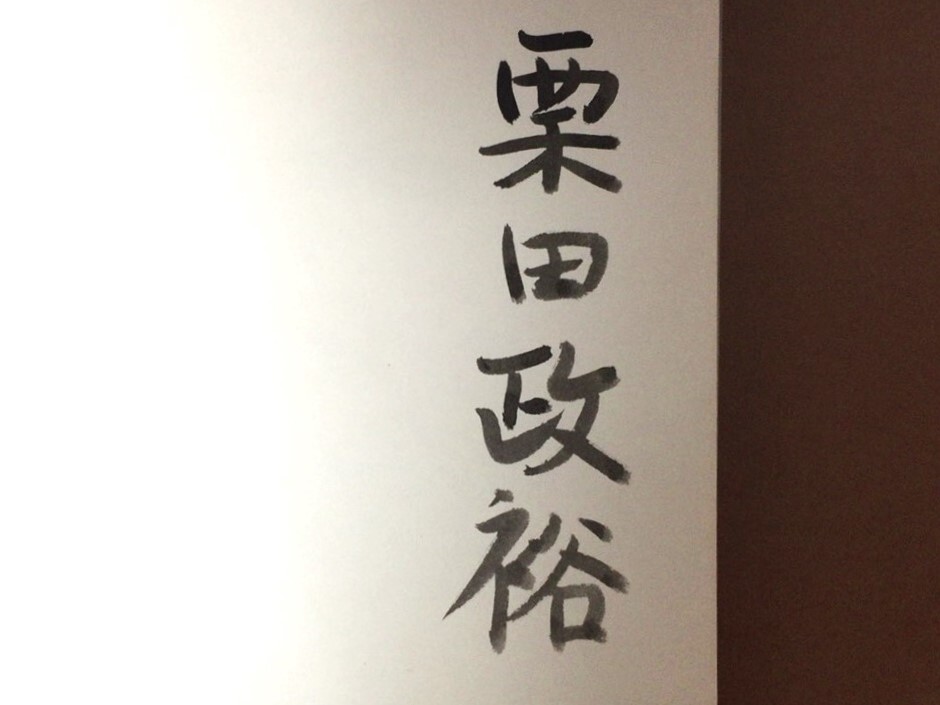 栗田政裕